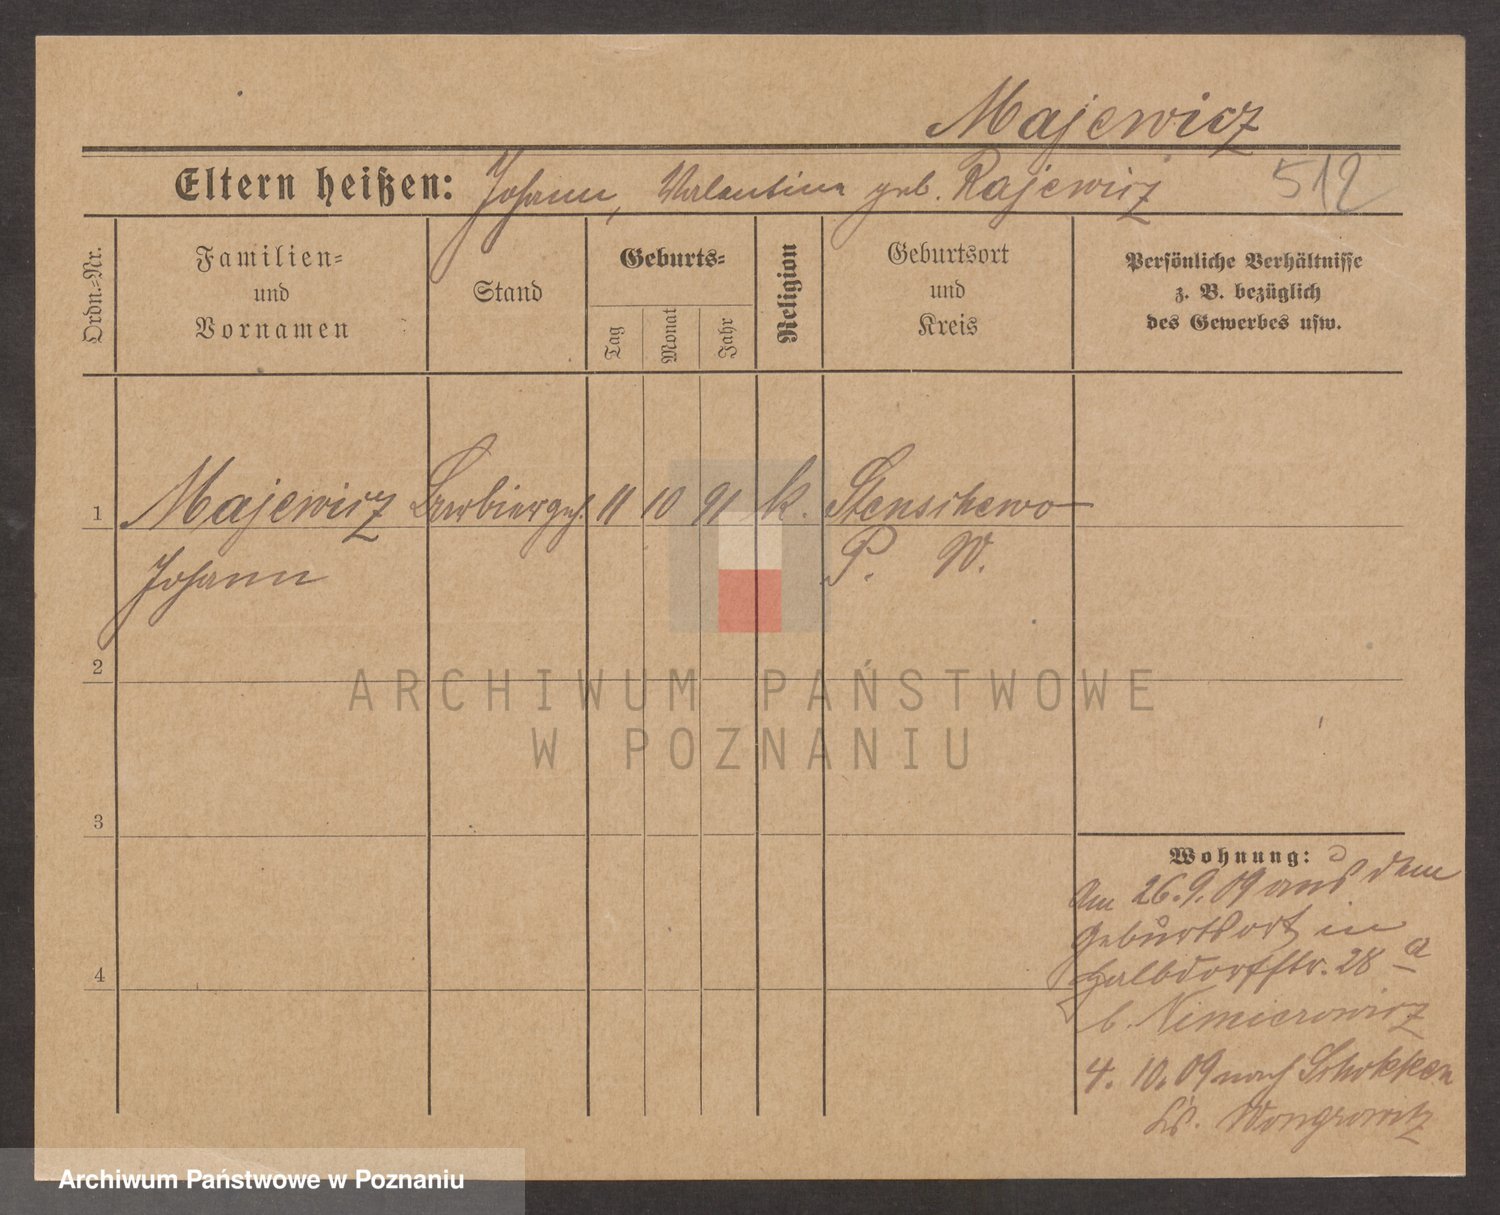 Majewicz
Eltern heißen: Johann, Valentina geb. Rajewicz 512
Ordn.-Nr.
Familien-
und
Vornamen
Stand
Geburts-
Tag
Monat
Jahr
Religion
Geburtsort
und
Kreis
Persönliche Verhältnisse
z. B. bezüglich
des Gewerbes usw.
1 Majewicz Barbiergeh. 11 10 91 k. Stenschewo
Johann P. W.
2
3
4
Wohnung:
Am 26.9.09 aus dem
Geburtsort in
Halbdorfstr. 28 a
b. Niemierowicz
4. 10. 09 nach Schokken
Kr. Wongrowitz
ARCHIWUM PAŃSTWOWE
W POZNANIU
Archiwum Państwowe w Poznaniu